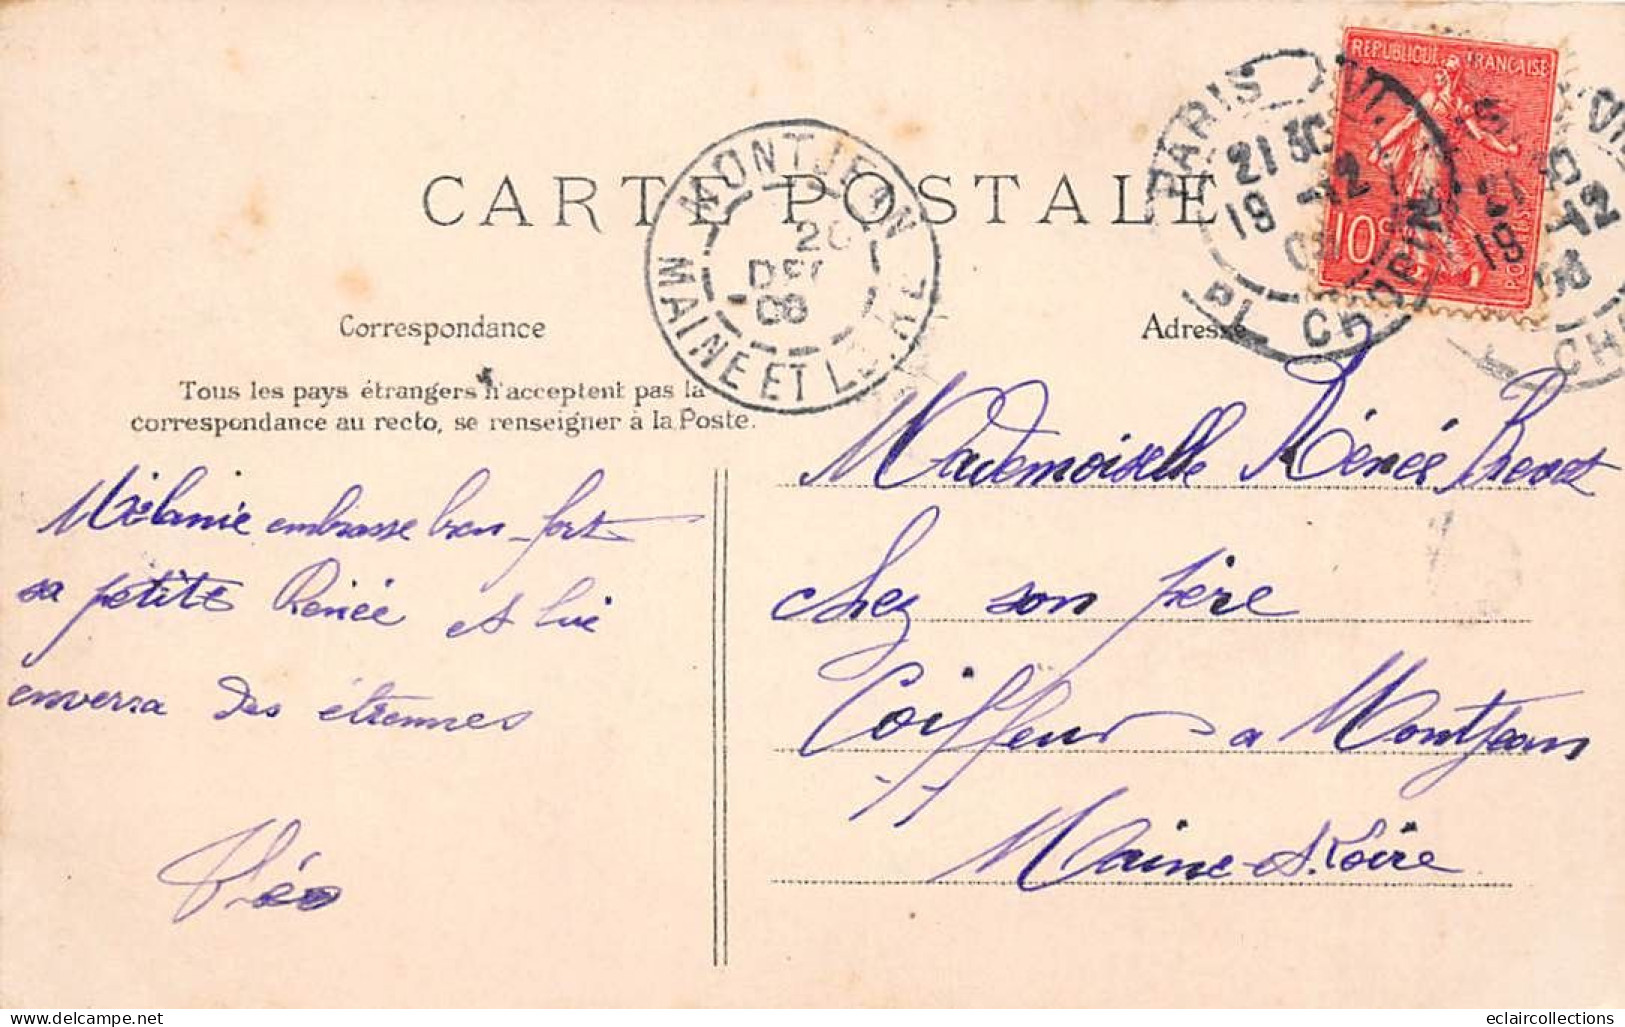 CARTE POSTALE
REPUBLIQUE FRANÇAISE
10c
PARIS
21 30
19 -12
PL. CHOPIN
MONTJEAN
20
DEC
08
MAINE ET LOIRE
19 -12
08
Correspondance
Adresse
Tous les pays étrangers n'acceptent pas la
correspondance au recto, se renseigner à la Poste.
Mélanie embrasse bien fort
sa petite Renée et lui
enverra des étrennes
Mademoiselle Rénée
chez son père
Coiffeur a Montjean
Maine et Loire
eclaircollections
delcampe.net